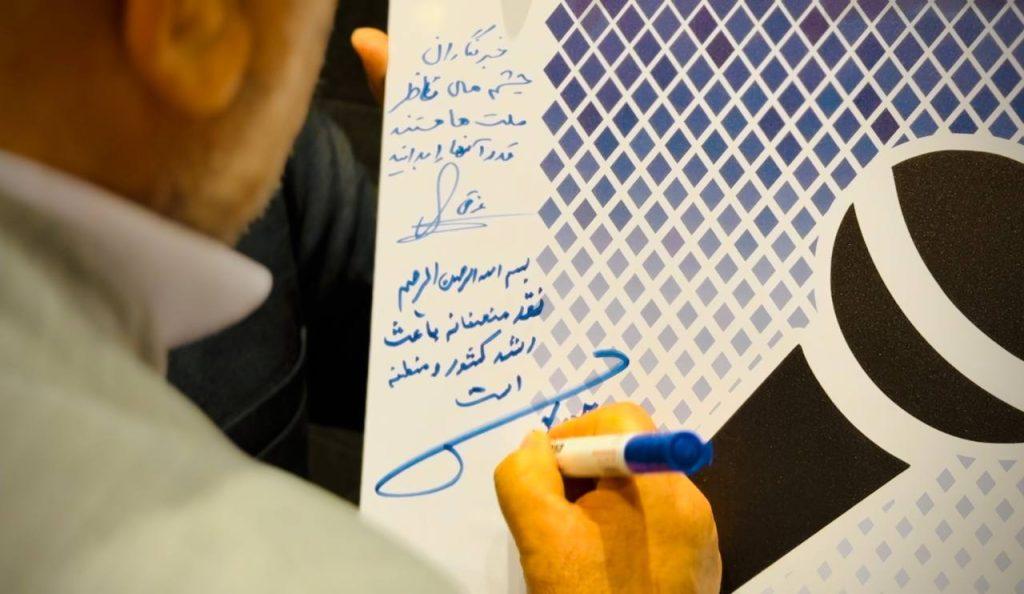 خبرنگاران
چشم های ناظر
ملت ها هستند
قدر آنها را بدانید
بسم الله الرحمن الرحیم
نقد منصفانه باعث
رشد کشور و منطقه
است